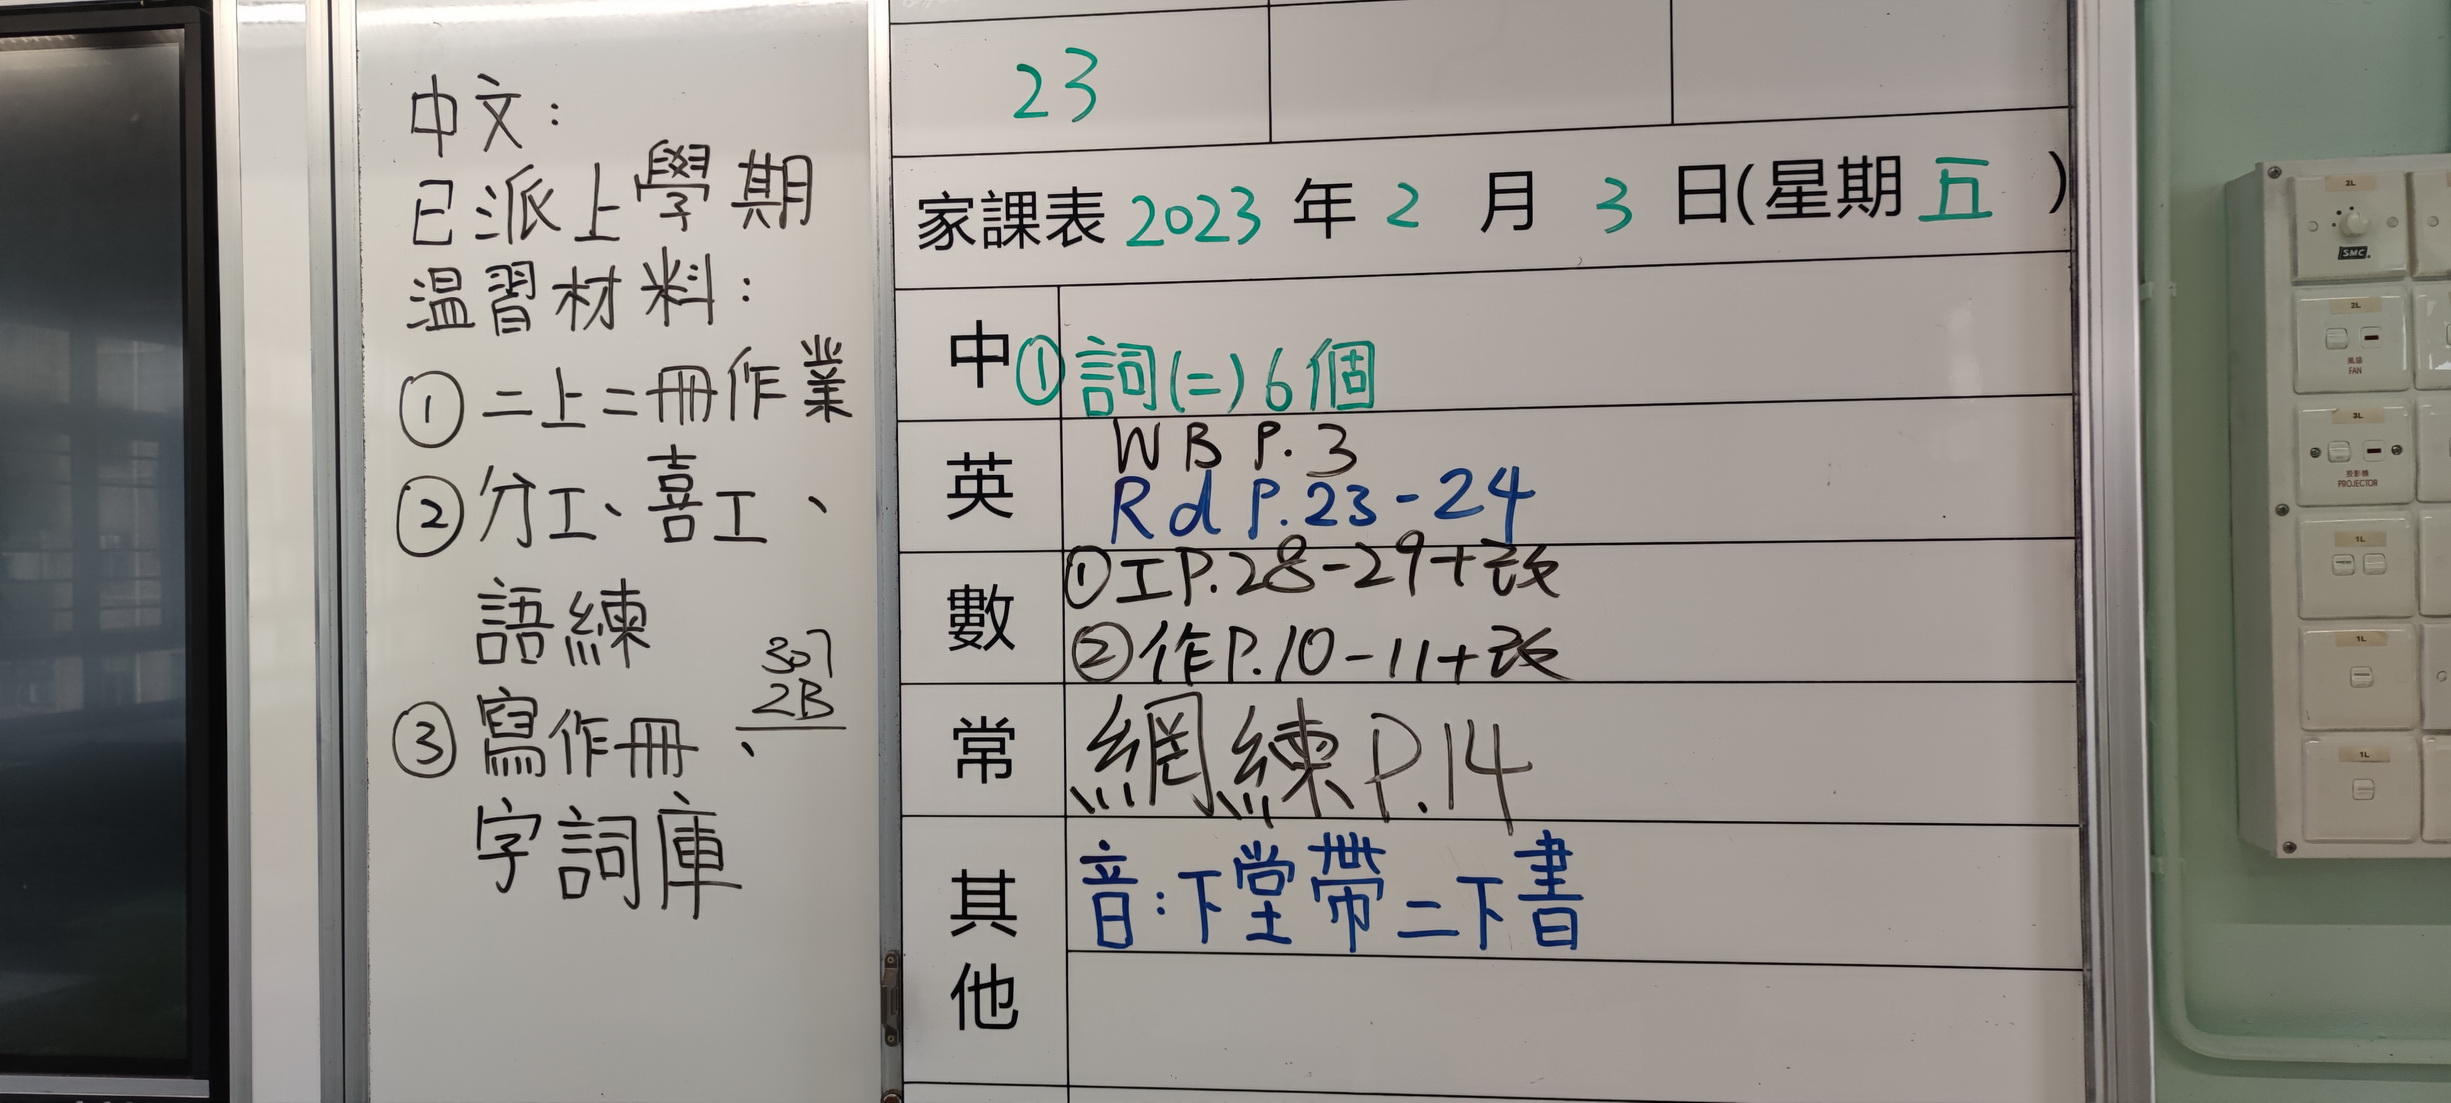 中文：
已派上學期
温習材料：
① 二上二冊作業
② 分工、喜工、
語練
③ 寫作冊、
字詞庫
307
2B
23
家課表 2023 年 2 月 3 日(星期 五 )
中 ① 詞(二) 6個
英 WB P. 3
Rd P. 23-24
數 ① 工P. 28-29+改
② 作P. 10-11+改
常 網練P. 14
其他 音：下堂帶二下書
2L
SMC
2L
風扇
FAN
3L
投影機
PROJECTOR
1L
1L
1L